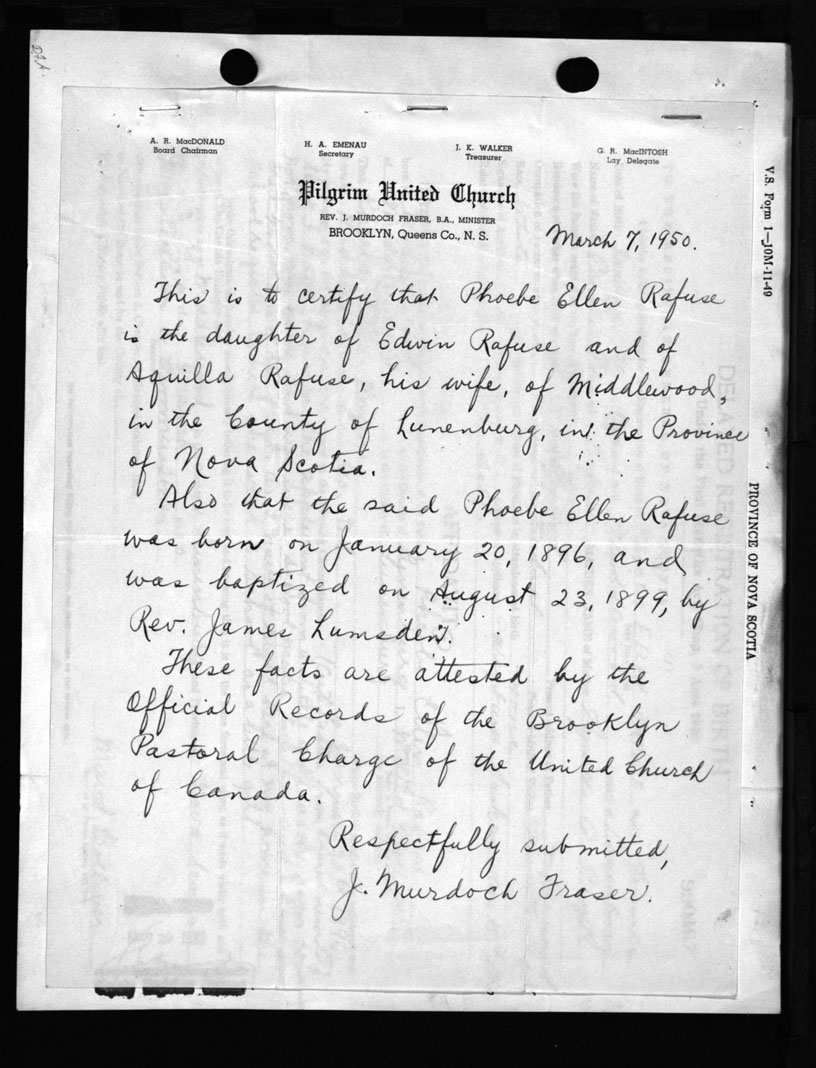 A. R. MacDONALD
Board Chairman
H. A. EMENAU
Secretary
J. K. WALKER
Treasurer
G. R. MacINTOSH
Lay Delegate
Pilgrim United Church
REV. J. MURDOCH FRASER, B.A., MINISTER
BROOKLYN, Queens Co., N. S.
March 7, 1950.
This is to certify that Phoebe Ellen Rafuse
is the daughter of Edwin Rafuse and of
Aquilla Rafuse, his wife, of Middlewood,
in the County of Lunenburg, in the Province
of Nova Scotia.
Also that the said Phoebe Ellen Rafuse
was born on January 20, 1896, and
was baptized on August 23, 1899, by
Rev. James Lumsden.
These facts are attested by the
Official Records of the Brooklyn
Pastoral Charge of the United Church
of Canada.
Respectfully submitted,
J. Murdoch Fraser.
V.S. Form 1—10M-11-49
PROVINCE OF NOVA SCOTIA